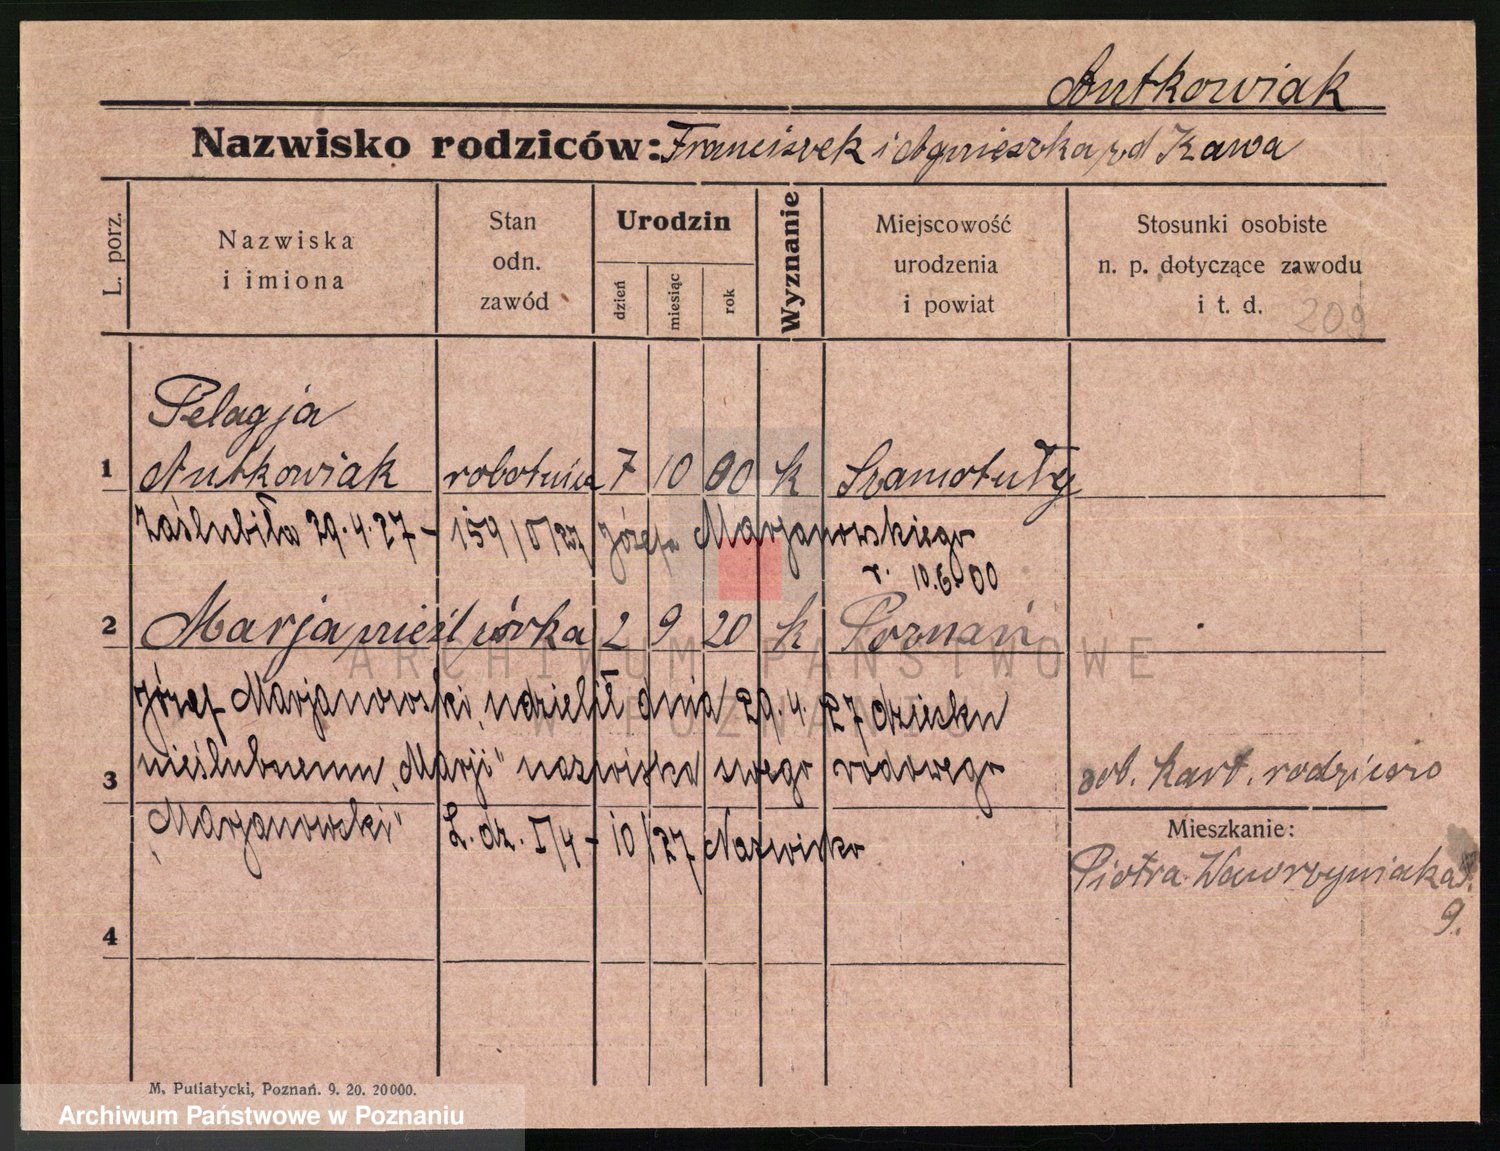 Antkowiak
Nazwisko rodziców: Franciszek i Agnieszka zd Kawa
L. porz.
Nazwiska
i imiona
Stan
odn.
zawód
Urodzin
dzień
miesiąc
rok
Wyznanie
Miejscowość
urodzenia
i powiat
Stosunki osobiste
n. p. dotyczące zawodu
i t. d.
209
Pelagja
1 Antkowiak robotnica 7 10 00 k Szamotuły
zaślubiła 29.4.27 - 159/5/27 Józefa Marjanowskiego
r. 10.3.00
2 Marja nieśl córka 2 9 20 k Poznań
Józef Marjanowski, udzielił dnia 29.4.27 dziecku
3 nieślubnemu „Marji" nazwiska swego rodowego
zob. kart. rodziców
„Marjanowski" L. dz. I/4 - 10/27 Nazwisko
Mieszkanie:
Piotra Wawrzyniaka
9.
4
M. Putiatycki, Poznań. 9. 20. 20000.
ARCHIWUM PAŃSTWOWE
W POZNANIU
Archiwum Państwowe w Poznaniu